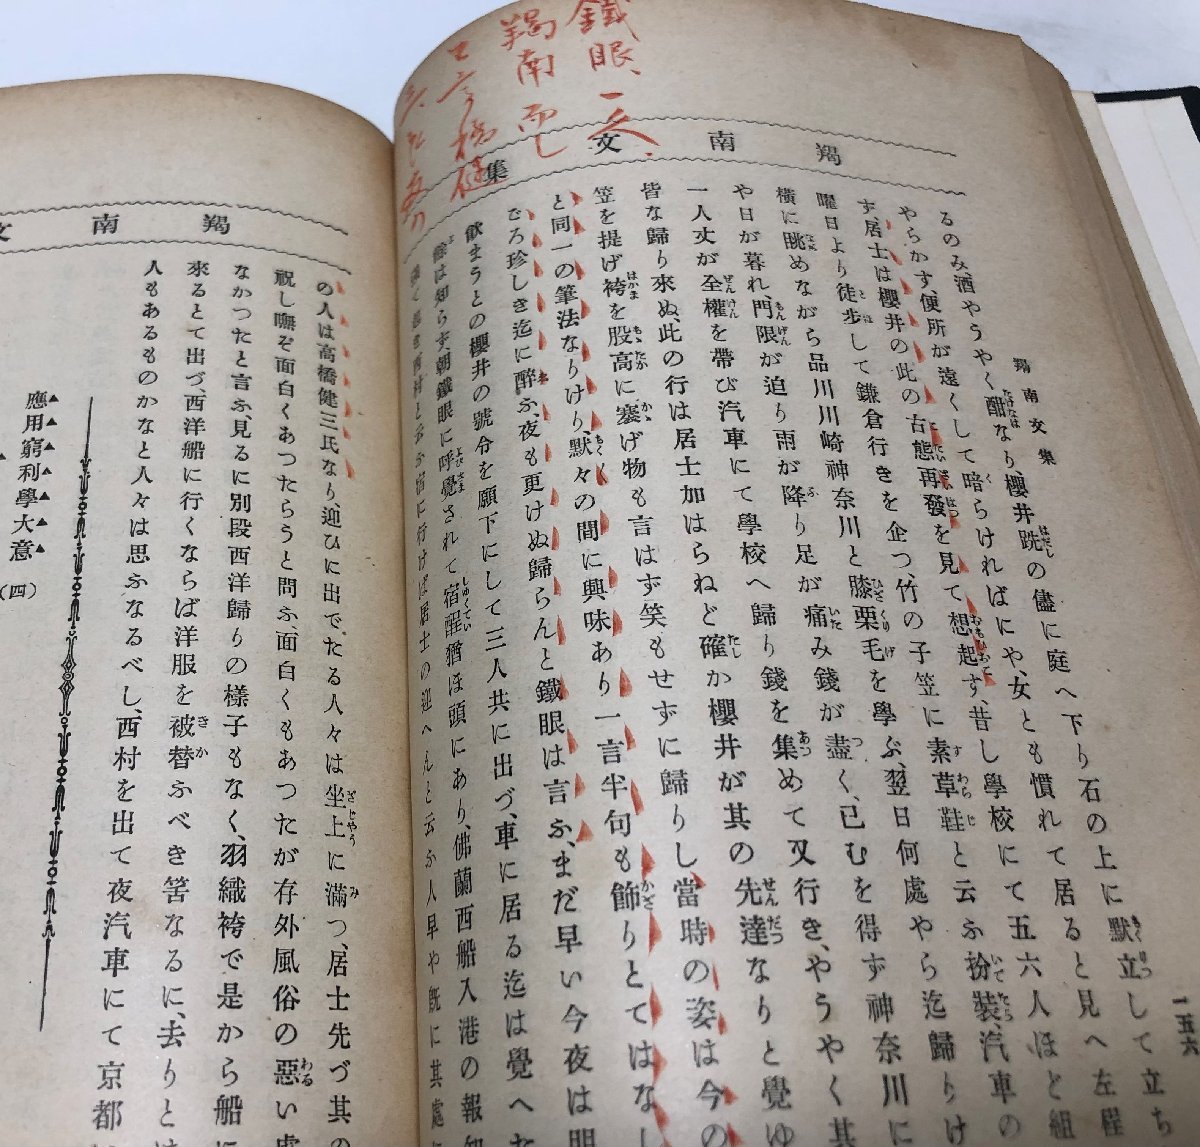 鐵眼、一
羯南
羯南文集
羯南文集
一五六
るのみ酒やうやく酣なり、櫻井跣の儘に庭へ下り石の上に默立して立ち
やらかす、便所が遠くして暗らければにや、女とも慣れて居ると見へ左程
す、居士は櫻井の此の古態再發を見て想起す、昔し學校にて五六人ほと組
曜日より徒步して鎌倉行きを企つ、竹の子笠に素草鞋と云ふ扮裝、汽車の
橫に眺めながら品川川崎神奈川と膝栗毛を學ぶ、翌日何處やら迄歸りけ
や日が暮れ、門限が迫り雨が降り足が痛み錢が盡く、已むを得ず神奈川に
一人丈が全權を帶び汽車にて學校へ歸り錢を集めて又行き、やうやく其
皆な歸り來ぬ、此の行は居士加はらねど確か櫻井が其の先達なりと覺ゆ
笠を提げ袴を股高に褰げ物も言はず笑もせずに歸りし、當時の姿は今の
と同一の筆法なりけり、默々の間に興味あり一言半句も飾りとてはなし
むろ珍しき迄に醉ふ、夜も更けぬ歸らんと鐵眼は言ふ、まだ早い今夜は明
飮まうとの櫻井の號令を願下にして三人共に出づ、車に居る迄は覺へた
餘は知らず朝鐵眼に呼覺されて宿酲猶ほ頭にあり、佛蘭西船入港の報知
西村と云ふ宿に行けば居士の迎へんと云ふ人早や旣に其處
羯南文
の人は高橋健三氏なり、迎ひに出で、たる人々は坐上に滿つ、居士先づ其の
祝し嘸ぞ面白くあつたらうと問ふ面白くもあつたが存外風俗の惡い處
なかつたと言ふ、見るに別段西洋歸りの樣子もなく、羽織袴で是から船に
來るとて出づ西洋船に行くならば洋服を被替ふべき筈なるに、去りとは
人もあるものかなと人々は思ふなるべし、西村を出て夜汽車にて京都
應用窮利學大意(四)